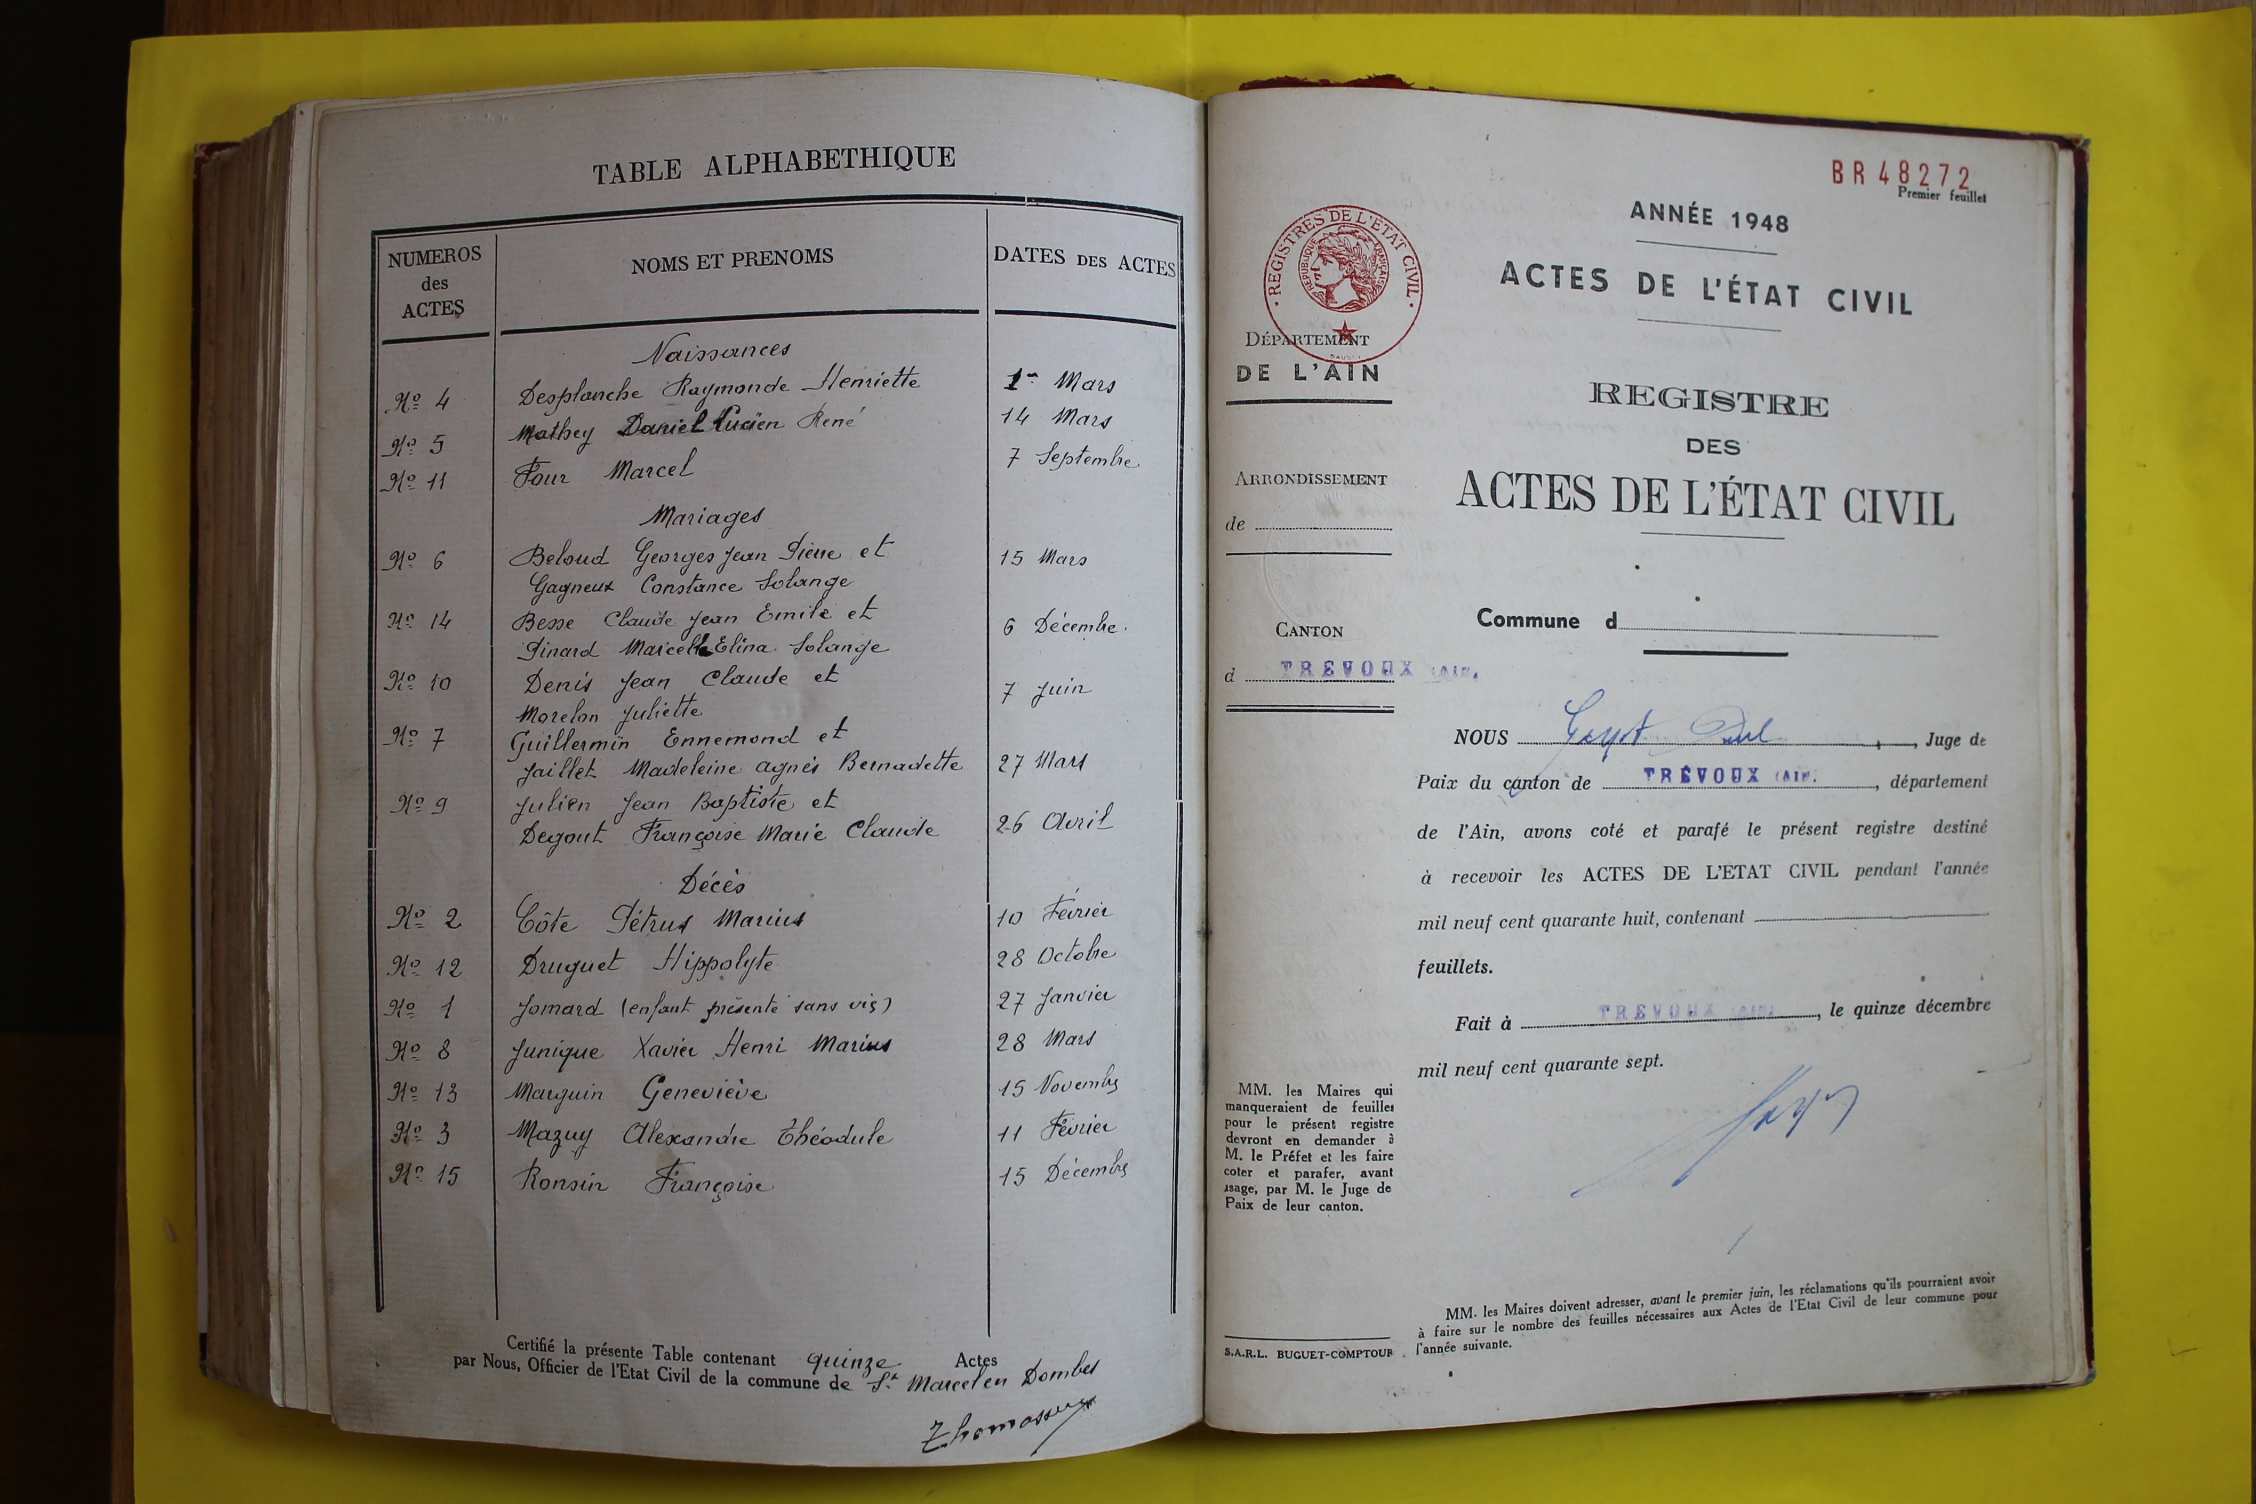 TABLE ALPHABETHIQUE
NUMEROS des ACTES
NOMS ET PRENOMS
DATES DES ACTES
Naissances
No 4 Desplanche Raymonde Henriette 1er Mars
No 5 Mathey Daniel Lucien René 14 Mars
No 11 Four Marcel 7 Septembre
Mariages
No 6 Beloud Georges Jean Pierre et 15 Mars
Gagneux Constance Solange
No 14 Besse Claude Jean Emile et 6 Décembre.
Pinard Marcelle Elina Solange
No 10 Denis Jean Claude et 7 Juin
Morelon Juliette
No 7 Guillermin Ennemond et
Jaillet Madeleine Agnès Bernadette 27 Mars
No 9 Julien Jean Baptiste et
Degout Françoise Marie Claude 26 Avril
Décès
No 2 Côte Pétrus Marius 10 Février
No 12 Druguet Hippolyte 28 Octobre
No 1 Jomard (enfant présenté sans vie) 27 Janvier
No 8 Junique Xavier Henri Marius 28 Mars
No 13 Marguin Geneviève 15 Novembre
No 3 Mazuy Alexandre Théodule 11 Février
No 15 Ronsin Françoise 15 Décembre
Certifié la présente Table contenant quinze Actes
par Nous, Officier de l'Etat Civil de la commune de St Marcel en Dombes
BR48272
Premier feuillet
ANNÉE 1948
ACTES DE L'ÉTAT CIVIL
REGISTRES DE L'ÉTAT CIVIL
RÉPUBLIQUE FRANÇAISE
DÉPARTEMENT
DE L'AIN
REGISTRE
DES
ACTES DE L'ÉTAT CIVIL
ARRONDISSEMENT
de
Commune d
CANTON
d TREVOUX (AIN)
NOUS Gayot Paul, Juge de
Paix du canton de TRÉVOUX (AIN), département
de l'Ain, avons coté et parafé le présent registre destiné
à recevoir les ACTES DE L'ETAT CIVIL pendant l'année
mil neuf cent quarante huit, contenant
feuillets.
Fait à TREVOUX (AIN), le quinze décembre
mil neuf cent quarante sept.
MM. les Maires qui
manqueraient de feuilles
pour le présent registre
devront en demander à
M. le Préfet et les faire
coter et parafer, avant
usage, par M. le Juge de
Paix de leur canton.
S.A.R.L. BUGUET-COMPTOUR
MM. les Maires doivent adresser, avant le premier juin, les réclamations qu'ils pourraient avoir
à faire sur le nombre des feuilles nécessaires aux Actes de l'Etat Civil de leur commune pour
l'année suivante.